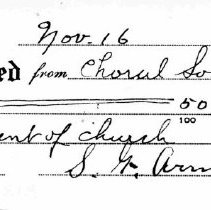 Nov. 16
ed from Choral So
50
100
ent of church
S. H. Arm